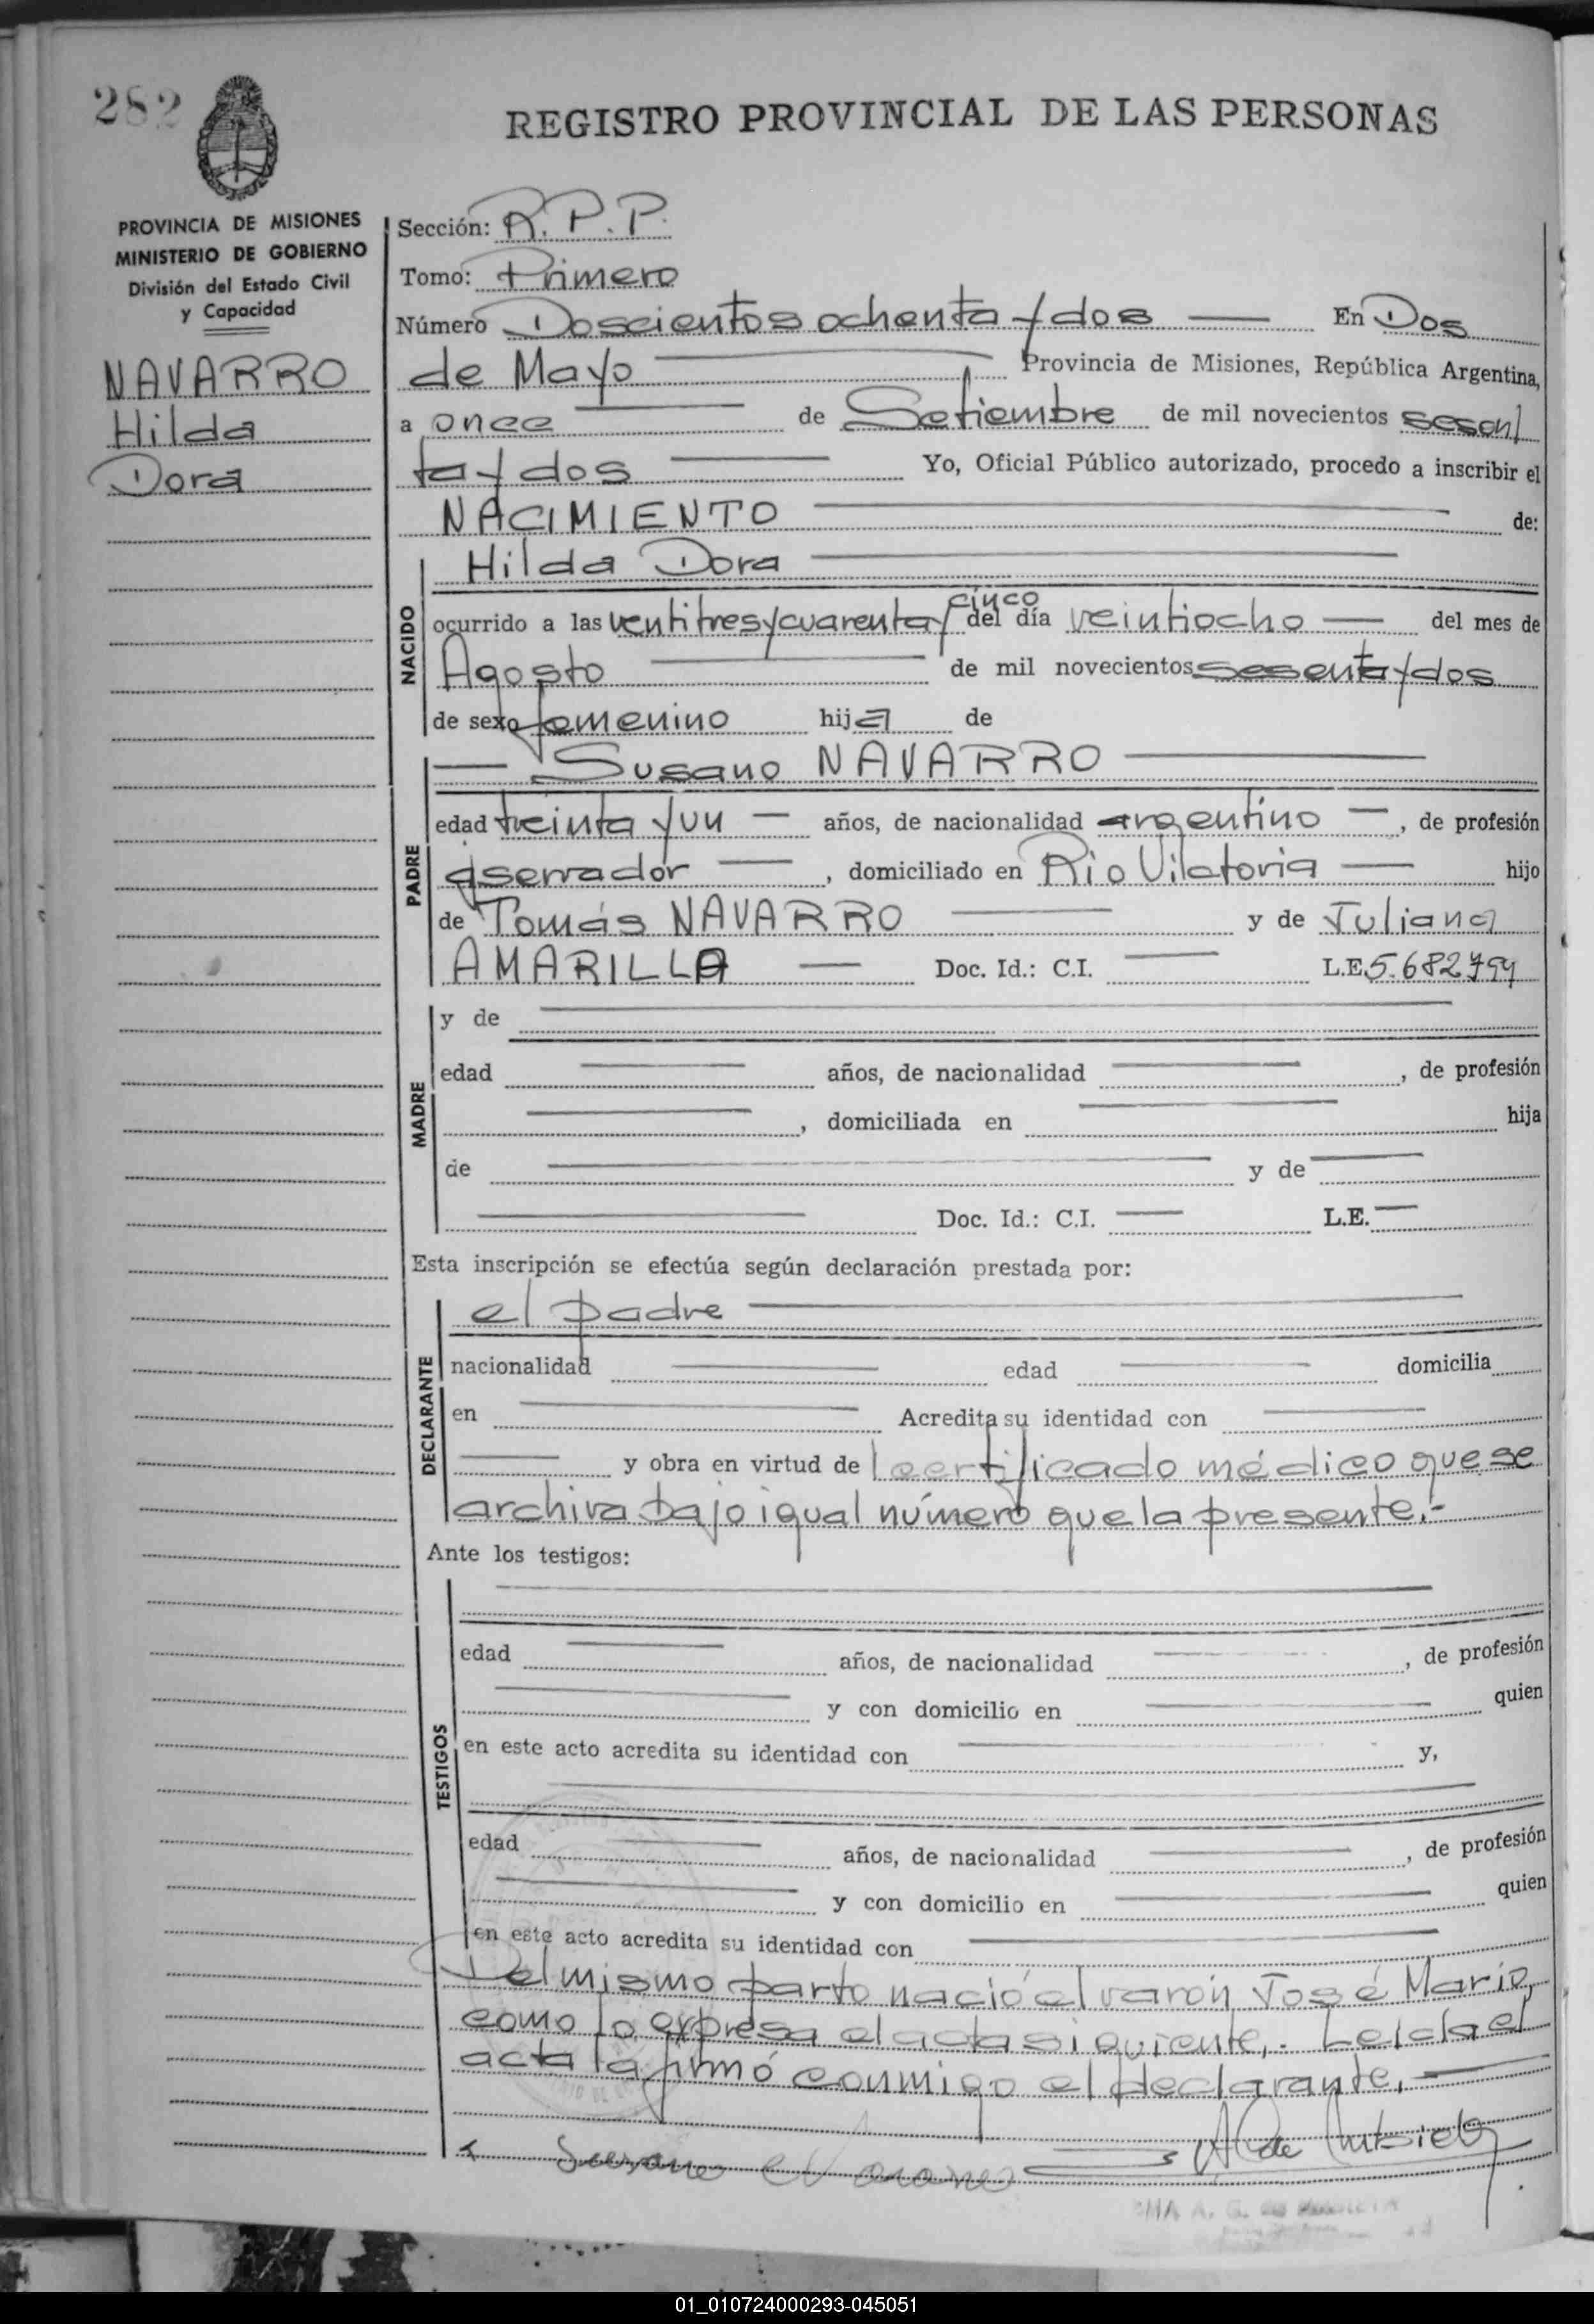 282
REGISTRO PROVINCIAL DE LAS PERSONAS
PROVINCIA DE MISIONES
MINISTERIO DE GOBIERNO
División del Estado Civil
y Capacidad
NAVARRO
Hilda
Dora
Sección: R. P. P.
Tomo: Primero
Número Doscientos ochenta y dos En Dos
de Mayo Provincia de Misiones, República Argentina,
a once de Setiembre de mil novecientos sesen
ta y dos Yo, Oficial Público autorizado, procedo a inscribir el
NACIMIENTO de:
Hilda Dora
NACIDO
cinco
ocurrido a las ventitres y cuarenta y del día veintiocho del mes de
Agosto de mil novecientos sesenta y dos
de sexo femenino hija de
Susano NAVARRO
PADRE
edad treinta y un años, de nacionalidad argentino, de profesión
aserrador, domiciliado en Rio Vilctoria hijo
de Tomás NAVARRO y de Juliana
AMARILLA Doc. Id.: C.I. L.E. 5.682.794
MADRE
y de
edad años, de nacionalidad , de profesión
, domiciliada en hija
de y de
Doc. Id.: C.I. L.E.
Esta inscripción se efectúa según declaración prestada por:
DECLARANTE
el padre
nacionalidad edad domicilia
en Acredita su identidad con
y obra en virtud de certificado médico que se
archiva bajo igual número que la presente.-
Ante los testigos:
TESTIGOS
edad años, de nacionalidad , de profesión
y con domicilio en quien
en este acto acredita su identidad con y,
edad años, de nacionalidad , de profesión
y con domicilio en quien
en este acto acredita su identidad con
Del mismo parto nació el varón José Mario,
como lo expresa el acta siguiente.- Leida el
acta la firmó conmigo el declarante.
Susano Navarro
01_010724000293-045051